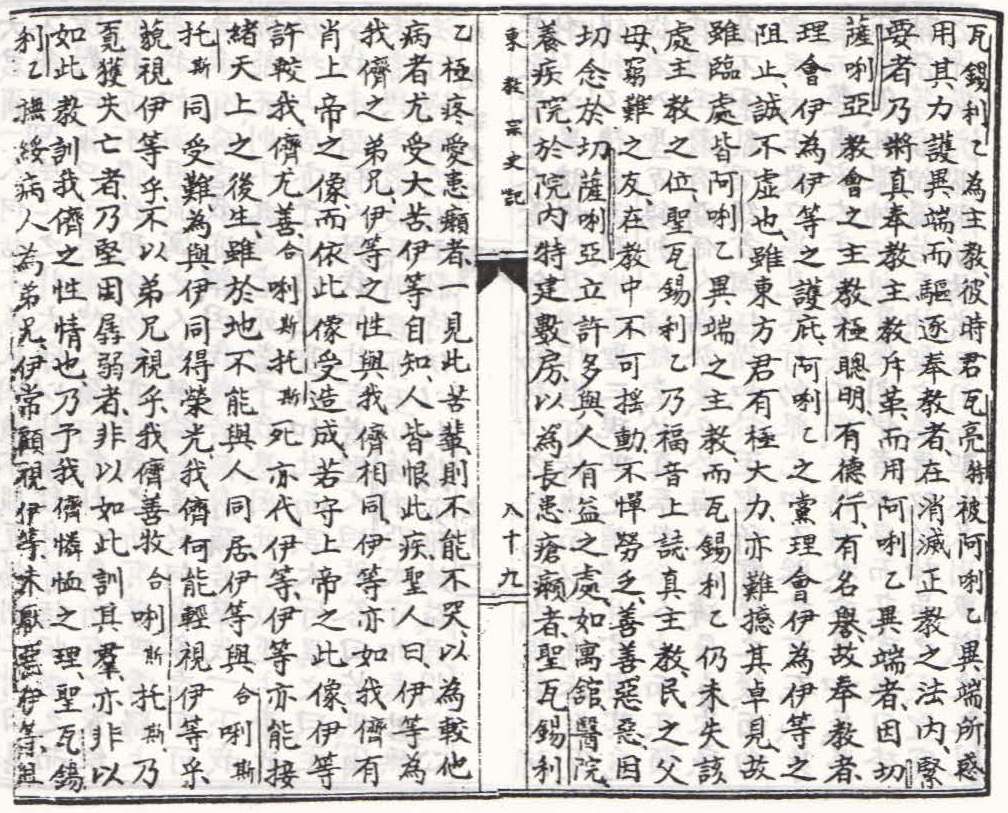 瓦錫利乙為主教、彼時君瓦亮特被阿唎乙異端所惑
用其力護異端、而驅逐奉教者、在消滅正教之法內、緊
要者乃將真奉教主教斥革、而用阿唎乙異端者、因切
薩唎亞教會之主教極聰明、有德行、有名譽、故奉教者、
理會伊為伊等之護庇、阿唎乙之黨理會伊為伊等之
阻止、誠不虛也、雖東方君有極大力、亦難撼其卓見、故
雖臨處皆阿唎乙異端之主教、而瓦錫利乙仍未失該
處主教之位、聖瓦錫利乙乃福音上誌真主教、民之父
母、窮難之友、在教中不可搖動、不憚勞乏、善善惡惡、因
切念於切薩唎亞立許多與人有益之處、如寓舘、醫院、
養疾院、於院內特建數房、以為長患瘡癩者、聖瓦錫利
東教宗史記
八十九
乙極疼愛患癩者、一見此苦輩、則不能不哭、以為較他
病者尤受大苦、伊等自知、人皆恨此疾、聖人曰、伊等為
我儕之弟兄、伊等之性與我儕相同、伊等亦如我儕有
肖上帝之像而依此像受造成、若守上帝之此像、伊等
許較我儕尤善、合唎斯托斯死亦代伊等、伊等亦能接
緒天上之後生、雖於地不能與人同居、伊等與合唎斯
托斯同受難為與伊同得榮光、我儕何能輕視伊等乎、
藐視伊等乎、不以弟兄視乎、我儕善牧合唎斯托斯、乃
覔獲失亡者、乃堅固孱弱者、非以如此訓其羣、亦非以
如此教訓我儕之性情也、乃予我儕憐恤之理、聖瓦錫
利乙撫綏病人為弟兄、伊常顧視伊等、未厭惡伊等、且